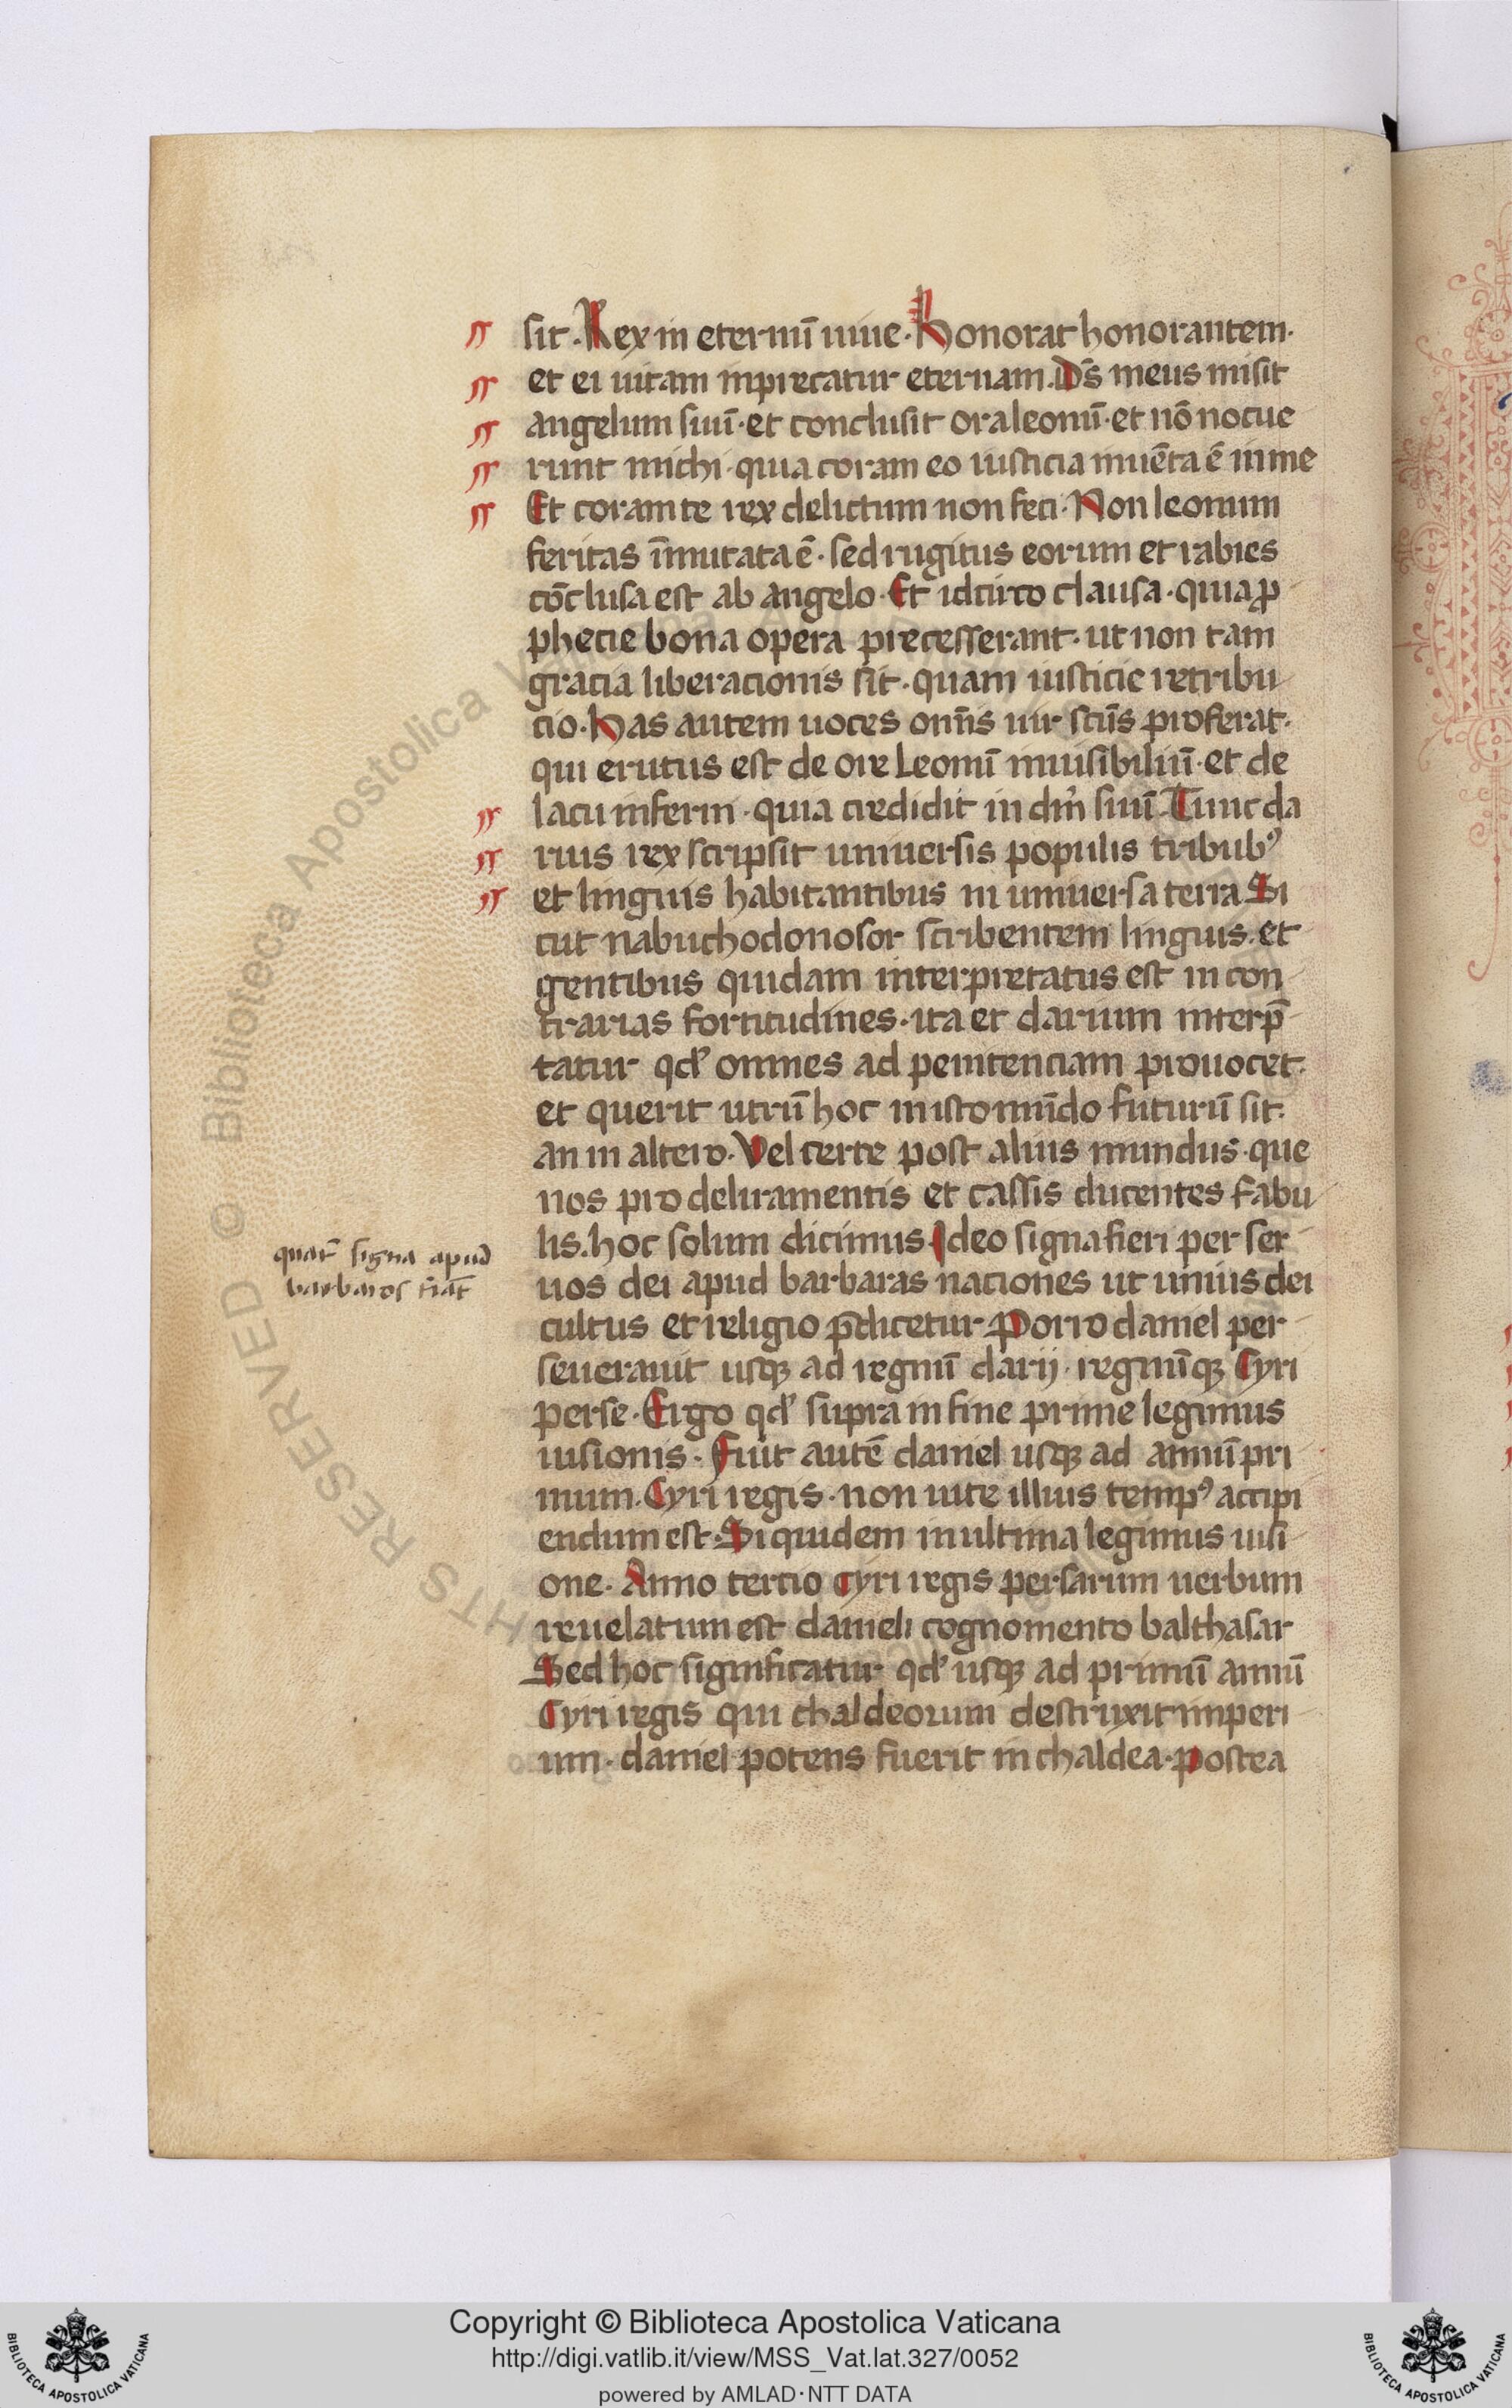 sit. Rex in eternū uiue. Honorat honorantem.
et ei uitam inprecatur eternam. Ds̄ meus misit
angelum suū. et conclusit ora leonū. et nō nocue
runt michi. quia coram eo iusticia inuēta ē in me
Et coram te rex delictum non feci. Non leonum
feritas īmutata ē. sed rugitus eorum et rabies
cōclusa est ab angelo. Et idcirco clausa. quia ꝓ
phecie bona opera precesserant. ut non tam
gracia liberacionis sit. quam iusticie retribu
cio. Has autem uoces omīs uir scūs proferat.
qui erutus est de ore leonū inuisibiliū. et de
lacu inferni. quia credidit in dm̄ suū. Tunc da
rius rex scripsit uniuersis populis tribubꝰ
et linguis habitantibus in uniuersa terra. Si
cut nabuchodonosor scribentem linguis. et
gentibus quidam interpretatus est in con
trarias fortitudines. ita et darium interp̄
tatur qd̕ omnes ad penitenciam prouocet.
et querit utrū hoc in isto mūdo futurū sit.
an in altero. Vel certe post alius mundus. que
nos pro deliramentis et cassis ducentes fabu
lis. hoc solum dicimus. Ideo signa fieri per ser
uos dei apud barbaras naciones ut unius dei
cultus et religio p̄dicetur. Porro daniel per
seuerauit usqꝫ ad regnū darij. regnūqꝫ Cyri
perse. Ergo qd̕ supra in fine prime legimus
uisionis. Fuit autē daniel usqꝫ ad annū pri
mum. Cyri regis. non uite illius tempꝰ accipi
endum est. Siquidem in ultima legimus uisi
one. Anno tercio Cyri regis persarum uerbum
reuelatum est danieli cognomento balthasar
Sed hoc significatur qd̕ usqꝫ ad primū annū
Cyri regis qui chaldeorum destruxit imperi
um. daniel potens fuerit in chaldea. postea
quar̄ signa apud
barbaros
RESERVED © Biblioteca Apostolica Vaticana
Copyright © Biblioteca Apostolica Vaticana
http://digi.vatlib.it/view/MSS_Vat.lat.327/0052
powered by AMLAD·NTT DATA
BIBLIOTECA APOSTOLICA VATICANA
BIBLIOTECA APOSTOLICA VATICANA